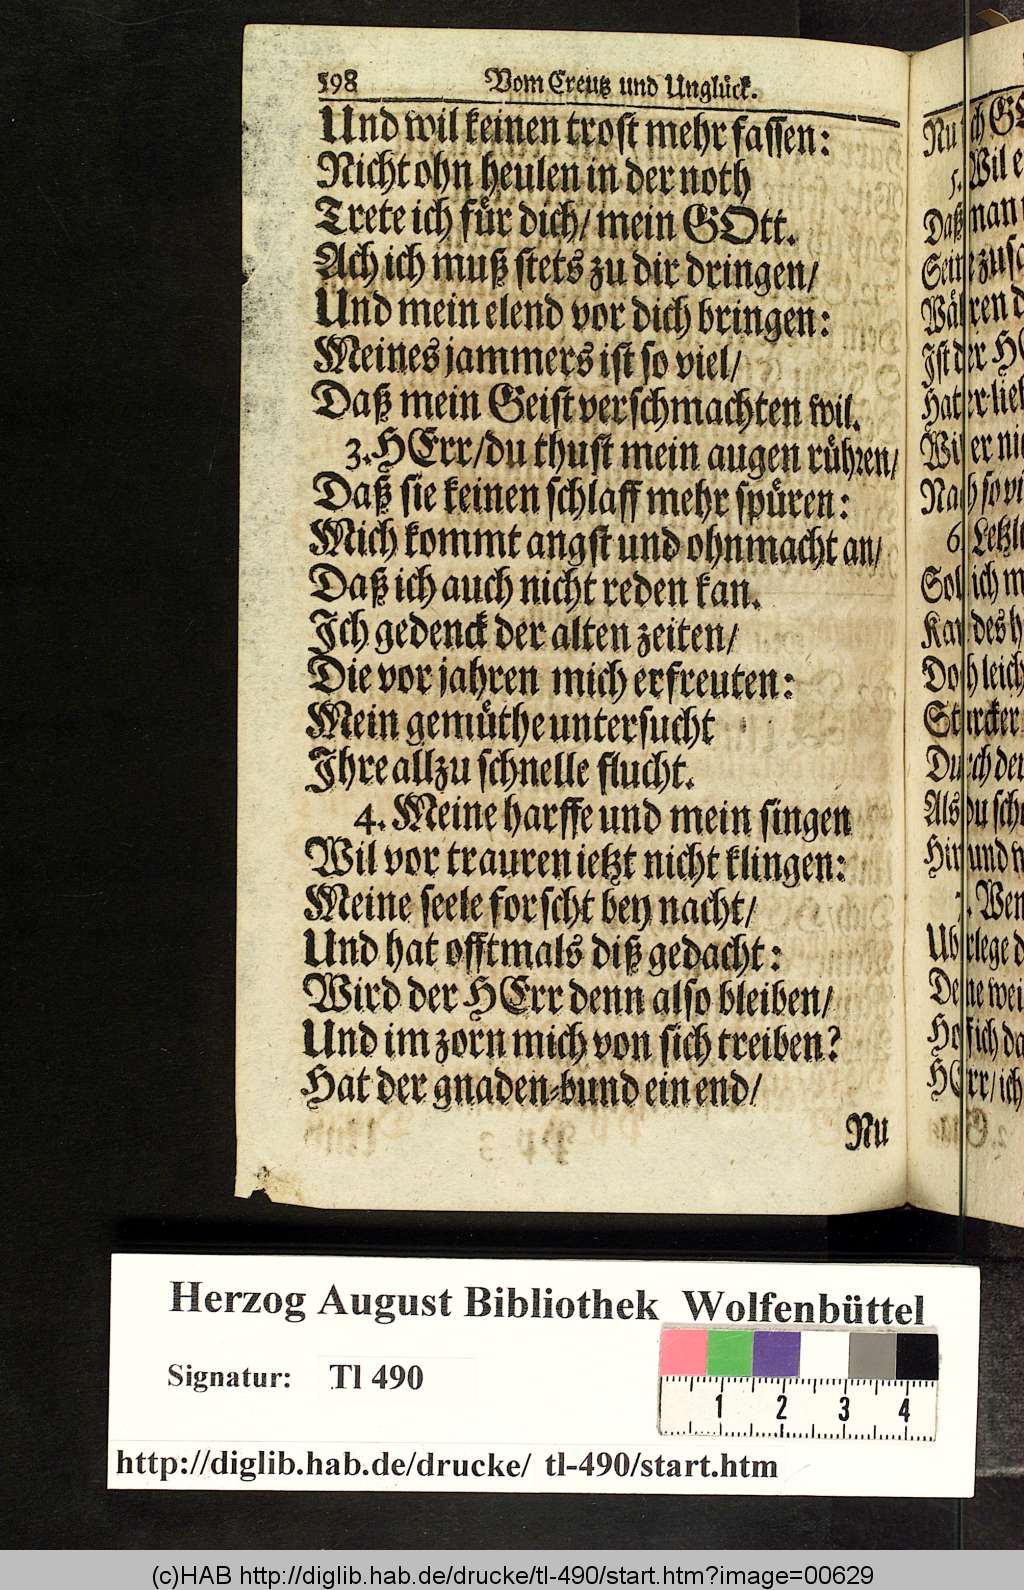 598 Vom Creutz und Unglück.
Und wil keinen trost mehr fassen:
Nicht ohn heulen in der noth
Trete ich für dich/ mein GOtt.
Ach ich muß stets zu dir dringen/
Und mein elend vor dich bringen:
Meines jammers ist so viel/
Daß mein Geist verschmachten wil.
3. HErr/ du thust mein augen rühren/
Daß sie keinen schlaff mehr spüren:
Mich kommt angst und ohnmacht an/
Daß ich auch nicht reden kan.
Ich gedenck der alten zeiten/
Die vor jahren mich erfreuten:
Mein gemüthe untersucht
Ihre allzu schnelle flucht.
4. Meine harffe und mein singen
Wil vor trauren ietzt nicht klingen:
Meine seele forscht bey nacht/
Und hat offtmals diß gedacht:
Wird der HErr denn also bleiben/
Und im zorn mich von sich treiben?
Hat der gnaden-bund ein end/
Nu
Herzog August Bibliothek Wolfenbüttel
Signatur: Tl 490
1 2 3 4
http://diglib.hab.de/drucke/ tl-490/start.htm
(c)HAB http://diglib.hab.de/drucke/tl-490/start.htm?image=00629